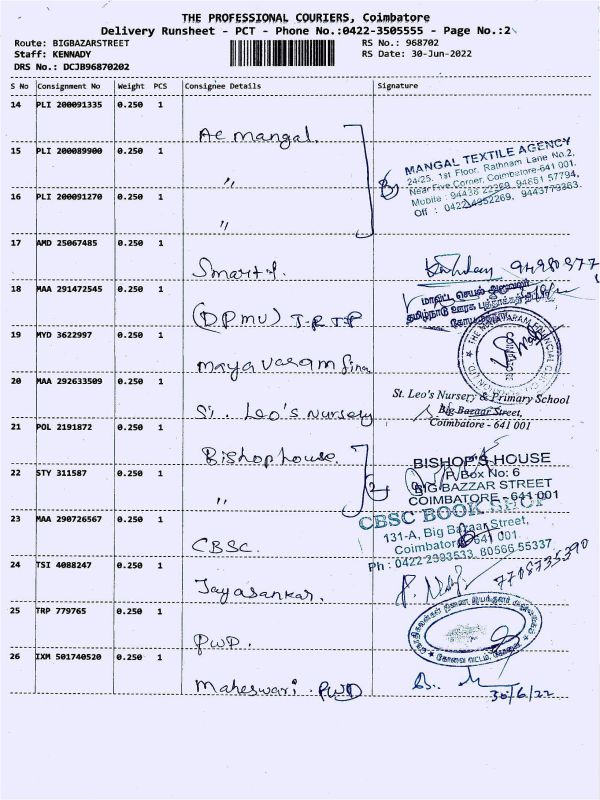 THE PROFESSIONAL COURIERS, Coimbatore
Delivery Runsheet - PCT - Phone No.:0422-3505555 - Page No.:2
Route: BIGBAZARSTREET RS No.: 968702
Staff: KENNADY RS Date: 30-Jun-2022
DRS No.: DCJB96870202
S No Consignment No Weight PCS Consignee Details Signature
14 PLI 200091335 0.250 1
Ae Mangal.
15 PLI 200089900 0.250 1
"
16 PLI 200091270 0.250 1
"
3
MANGAL TEXTILE AGENCY
24-25, 1st Floor, Rathnam Lane No.2,
Near Five Corner, Coimbatore-641 001.
Mobile : 94438 22269, 94861 57794,
Off : 0422-4952269, 9443779363.
17 AMD 25067485 0.250 1
18 MAA 291472545 0.250 1
(DPMU)
மாவட்ட செயல் அலுவலர்
19 MYD 3622997 0.250 1
mayavaram fina
20 MAA 292633509 0.250 1
St. Leo's Nursery
St. Leo's Nursery & Primary School
Big Bazaar Street,
Coimbatore - 641 001
21 POL 2191872 0.250 1
Bishop house.
22 STY 311587 0.250 1
"
2
BISHOP'S HOUSE
P. Box No: 6
BIG BAZZAR STREET
COIMBATORE - 641 001
23 MAA 290726567 0.250 1
CBSC.
CBSC BOOK SHOP
131-A, Big Bazaar Street,
Coimbatore 641 001.
Ph : 0422 2393533, 80566 55337
24 TSI 4088247 0.250 1
Jayasankar.
7708735390
25 TRP 779765 0.250 1
PWD.
26 IXM 501740520 0.250 1
Maheswari. PWD
30/6/22